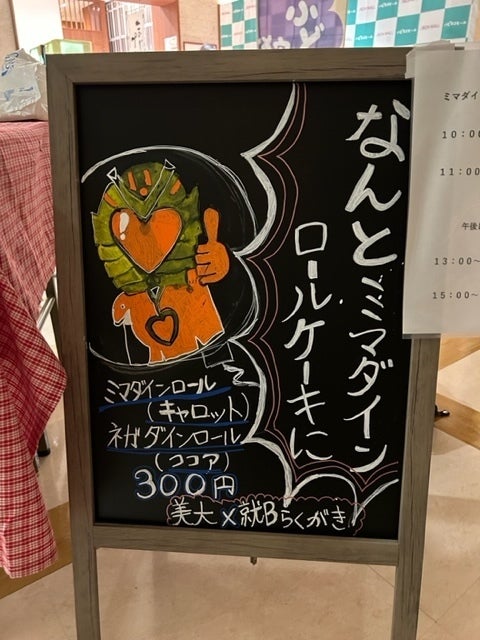 なんとミマダイン
ロールケーキに
ミマダインロール
(キャロット)
ネガダインロール
(ココア)
300円
美大×就Bらくがき
ミマダイ
10:00
11:00
午後
13:00～
15:00～